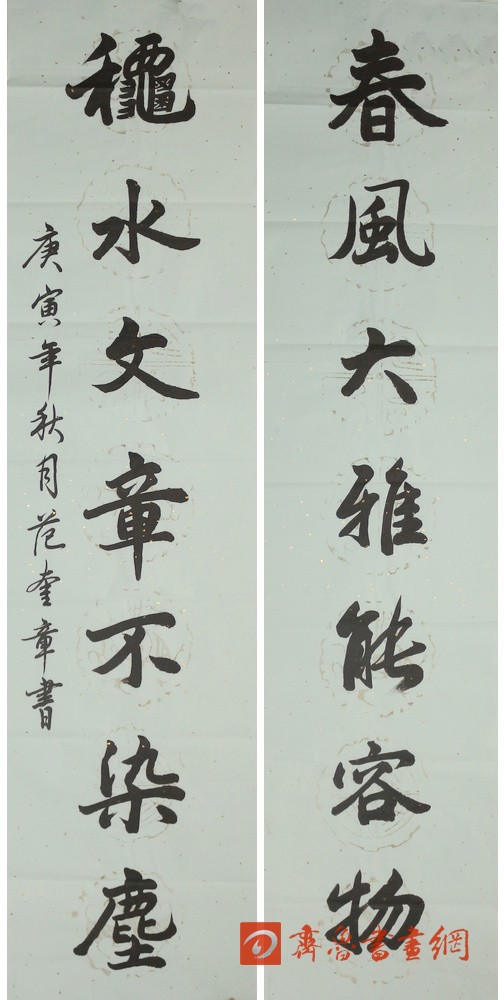 春風大雅能容物
穐水文章不染塵
庚寅年秋月范奎章書
齊魯書畫網